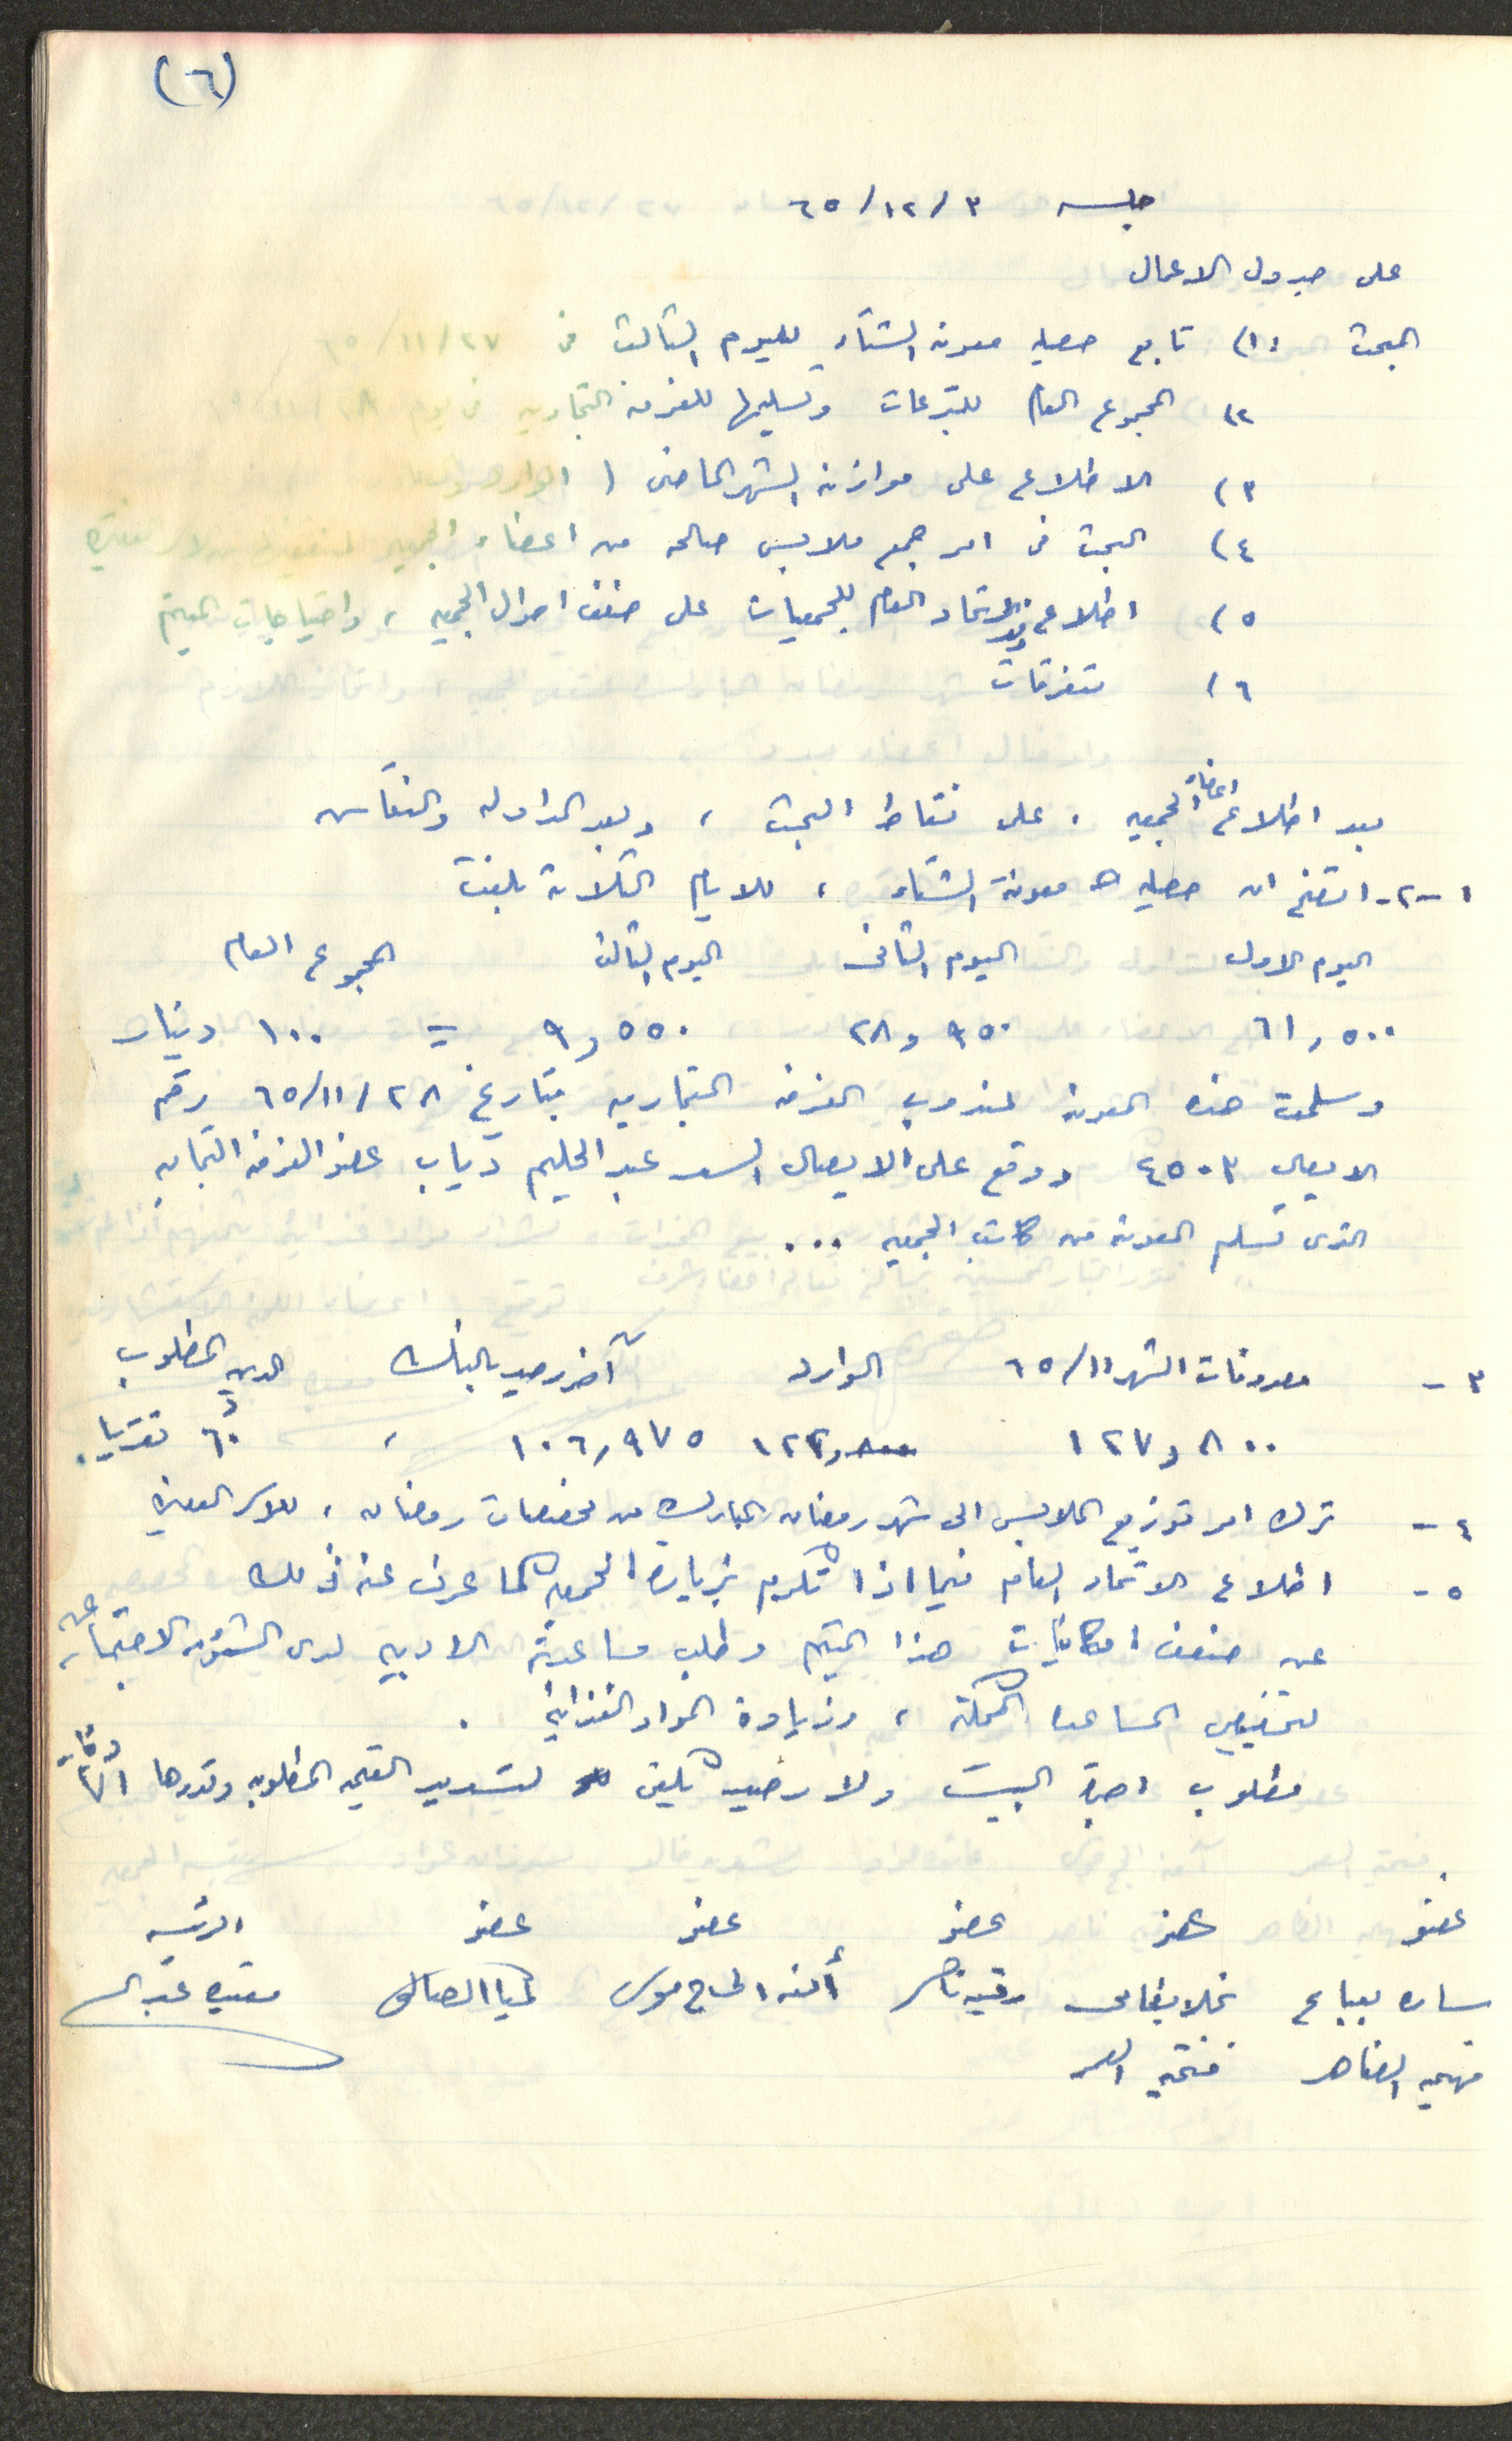 (٦)
جلسه ٣ / ١٢ / ٦٥
على جدول الاعمال
البحث ١) تابع حصيله معونه الشتاء لليوم الثالث في ٢٧ / ١١ / ٦٥
٢) المجموع العام للتبرعات وتسليمها للغرفه التجاريه في يوم ٢٨ / ١١ / ٦٥
٣) الاطلاع على موازنه الشهر الماضي (
٤) البحث في امر جمع ملابس صالحه من اعضاء الجمعيه
٥) اطلاع الاتحاد العام للجمعيات على ضعف احوال الجمعيه ، واحتياجات الميتم
٦) متفرقات
بعد اطلاع اعضاء الجمعيه ، على نقاط البحث ، وبعد المداوله والنقاش
١-٢- اتضح ان حصيله معونة الشتاء ، للايام الثلاثة بلغت
اليوم الاول اليوم الثاني اليوم الثالث المجموع العام
٦١,٥٠٠ ٢٨,٩٥٠ ٩,٥٥٠ = ١٠٠ دينار
وسلمت هذه المعونه لمندوب الغرفه التجاريه بتاريخ ٢٨ / ١١ / ٦٥ رقم
الايصال ٤٥٠٣ ووقع على الايصال السيد عبد الحليم دياب عضو الغرفه التجاريه
الذي تسلم المعونة من كاتب الجمعيه ...
٣- مصروفات الشهر ١١ / ٦٥ الوارد آخر رصيد بالبنك الدين المطلوب
١٢٧,٨٠٠ ١٠٦,٩٧٥ ، ٦٠ تقريبا .
٤- ترك امر توزيع الملابس الى شهر رمضان المبارك من مخصصات رمضان ، للاسر الفقيره
٥- اطلاع الاتحاد العام فيما اذا تكرم بزيارة الجمعيه كما عرف عنه ذلك
عن ضعف امكانيات هذا الميتم وطلب مساعدته الادبيه لدى الشؤون الاجتماعيه
لتخصيص المساعده الممكنة ، وزيادة المواد الغذائيه .
مطلوب اجرة البيت ولا رصيد يكفي لتسديد القيمه المطلوبه وقدرها
عضو عضو عضو عضو عضو الرئيسه
ساره بعباع نجلا رقيه ناصر آمنه الحاج موسى لميا الصالح
فهميه الضاهر فتحيه العمر